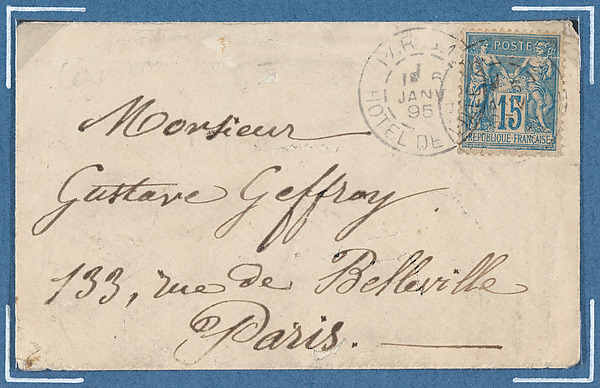 JANV
95
HOTEL DE
POSTE
15
REPUBLIQUE FRANÇAISE
Monsieur
Gustave Geffroy.
133, rue de Belleville
Paris.